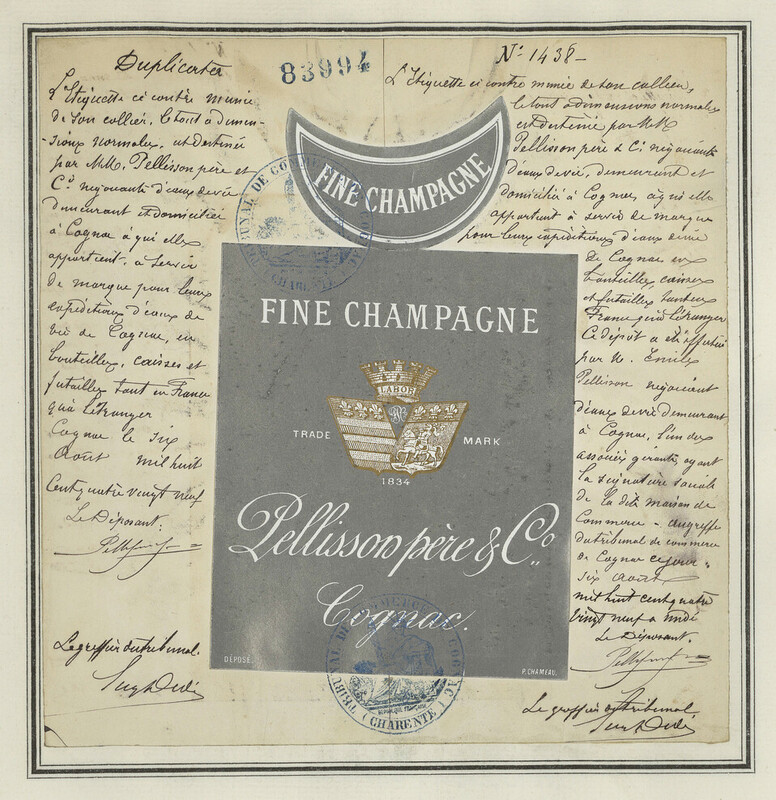 Duplicata
83994
L'Etiquette ci contre munie
de son collier, le tout à dimen-
-sions normales, est destinée
par MM. Pellisson père et
Cⁱᵉ négociants d'eaux de vie
demeurant et domiciliés
à Cognac à qui elle
appartient, à servir
de marque pour leurs
expéditions d'eaux de
vie de Cognac, en
bouteilles, caisses et
futailles tant en France
qu'à l'étranger
Cognac le six
Août mil huit
cent quatre vingt neuf
Le Déposant:
Le greffier du tribunal.
Nº 1438-
L'Etiquette ci contre munie de son collier,
le tout à dimensions normales
est destinée par MM
Pellisson père & Cⁱᵉ négociants
d'eaux de vie, demeurant et
domiciliés à Cognac, à qui elle
appartient à servir de marque
pour leurs expéditions d'eaux de vie
de Cognac en
bouteilles, caisses
et futailles tant en
France qu'à l'étranger
Ce dépôt a été effectué
par M. Emile
Pellisson négociant
d'eaux de vie demeurant
à Cognac, l'un des
associés gérants, ayant
la signature sociale
de la dite maison de
Commerce - au greffe
du tribunal de commerce
de Cognac ce jour
six Août
mil huit cent quatre
vingt neuf à midi
Le Déposant.
Le greffier du tribunal
FINE CHAMPAGNE
FINE CHAMPAGNE
LABOR
TRADE MARK
1834
Pellisson père & Cº.
Cognac.
DÉPOSÉ.
P. CHAMEAU.
TRIBUNAL DE COMMERCE COGNAC
CHARENTE
TRIBUNAL DE COMMERCE DE COGNAC
RÉPUBLIQUE FRANÇAISE
(CHARENTE)